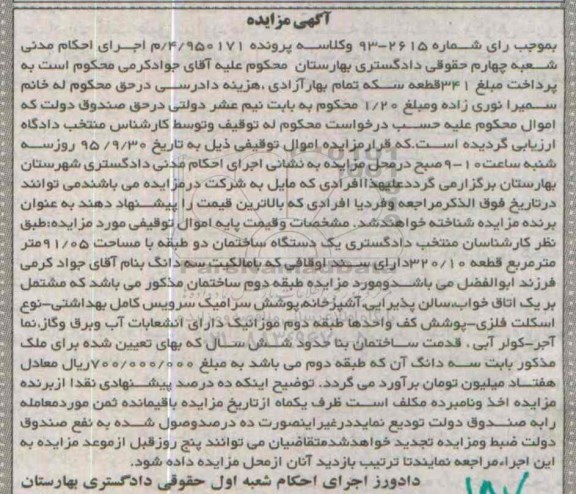 آگهی مزایده
بموجب رای شماره ۲۶۱۵-۹۳ وکلاسه پرونده ۴/۹۵۰۱۷۱/م اجرای احکام مدنی
شعبه چهارم حقوقی دادگستری بهارستان محکوم علیه آقای جوادکرمی محکوم است به
پرداخت مبلغ ۳۴۱قطعه سکه تمام بهارآزادی ،هزینه دادرسی درحق محکوم له خانم
سمیرا نوری زاده ومبلغ ۱/۲۰ محکوم به بابت نیم عشر دولتی درحق صندوق دولت که
اموال محکوم علیه حسب درخواست محکوم له توقیف وتوسط کارشناس منتخب دادگاه
ارزیابی گردیده است.که قرارمزایده اموال توقیفی ذیل به تاریخ ۹۵/۹/۳۰ روزسه
شنبه ساعت۱۰-۹صبح درمحل مزایده به نشانی اجرای احکام مدنی دادگستری شهرستان
بهارستان برگزارمی گرددعلیهذاافرادی که مایل به شرکت درمزایده می باشندمی توانند
درتاریخ فوق الذکرمراجعه وفردیا افرادی که بالاترین قیمت را پیشنهاد دهند به عنوان
برنده مزایده شناخته خواهندشد. مشخصات وقیمت پایه اموال توقیفی مورد مزایده:طبق
نظر کارشناسان منتخب دادگستری یک دستگاه ساختمان دو طبقه با مساحت ۹۱/۰۵متر
مترمربع قطعه ۳۲۰/۱۰دارای سند اوقافی که بامالکیت سه دانگ بنام آقای جواد کرمی
فرزند ابوالفضل می باشدومورد مزایده طبقه دوم ساختمان مذکور می باشد که مشتمل
بر یک اتاق خواب،سالن پذیرایی،آشپزخانه،پوشش سرامیک سرویس کامل بهداشتی-نوع
اسکلت فلزی-پوشش کف واحدها طبقه دوم موزائیک دارای انشعابات آب وبرق وگاز،نما
آجر-کولر آبی . قدمت ساختمان بنا حدود شش سال که بهای تعیین شده برای ملک
مذکور بابت سه دانگ آن که طبقه دوم می باشد به مبلغ ۷۰۰/۰۰۰/۰۰۰ریال معادل
هفتاد میلیون تومان برآورد می گردد. توضیح اینکه ده درصد پیشنهادی نقدا ازبرنده
مزایده اخذ ونامبرده مکلف است ظرف یکماه ازتاریخ مزایده باقیمانده ثمن موردمعامله
رابه صندوق دولت تودیع نمایددرغیراینصورت ده درصدوصول شده به نفع صندوق
دولت ضبط ومزایده تجدید خواهدشدمتقاضیان می توانند پنج روزقبل ازموعد مزایده به
این اجراءمراجعه نمایندتا ترتیب بازدید آنان ازمحل مزایده داده شود.
دادورز اجرای احکام شعبه اول حقوقی دادگستری بهارستان